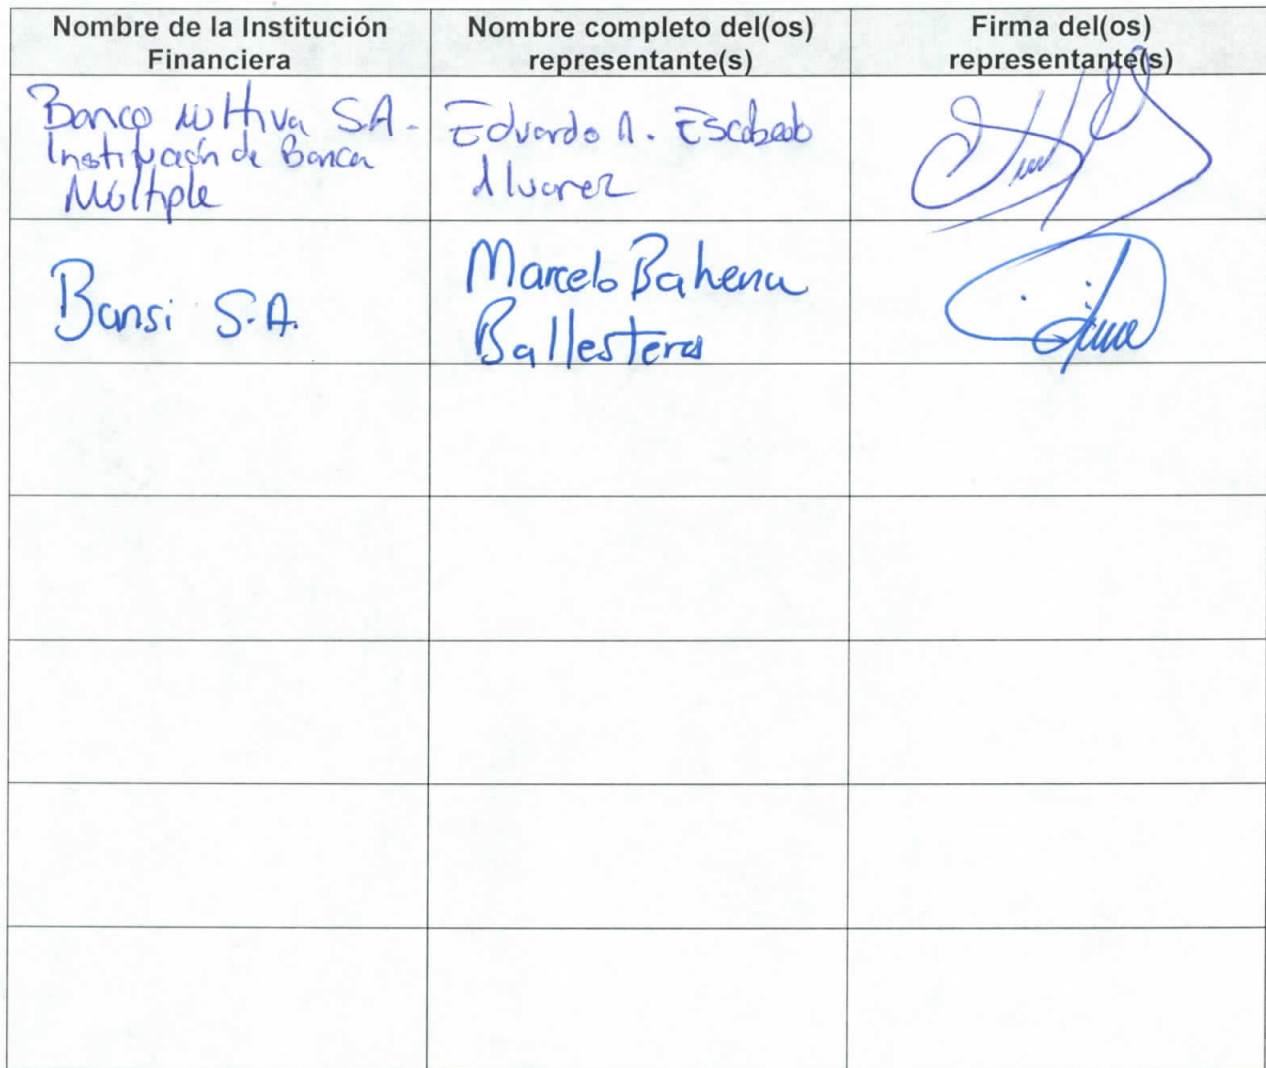 Nombre de la Institución
Financiera
Nombre completo del(os)
representante(s)
Firma del(os)
representante(s)
Banco Multiva S.A.
Institución de Banca
Múltiple
Eduardo A.
Alvarez
Bansi S.A.
Marcelo Bahena
Ballesteros